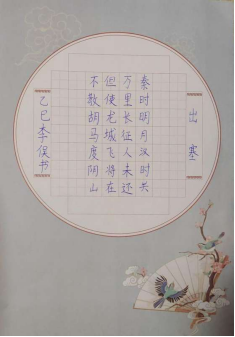 出塞
秦时明月汉时关
万里长征人未还
但使龙城飞将在
不敎胡马度阴山
乙巳李俣书